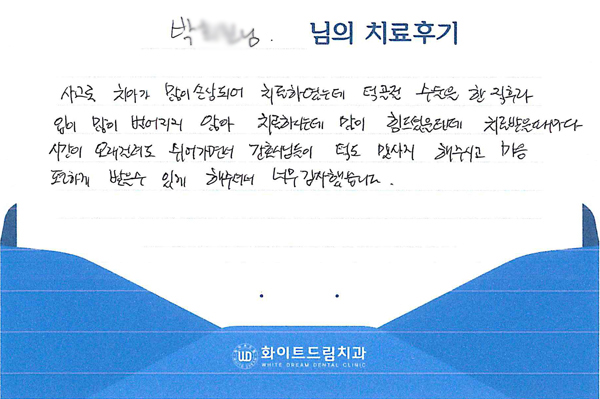 박 님. 님의 치료후기
사고로 치아가 많이 손상되어 치료하였는데 턱골절 수술을 한 직후라
입이 많이 벌어지지 않아 치료하시는데 많이 힘드셨을텐데 치료받을때마다
시간이 오래걸려도 쉬어가면서 간호사님들이 턱도 맛사지 해주시고 마음
편하게 받을수 있게 해주셔서 너무 감사했습니다.
WD 화이트드림치과
WHITE DREAM DENTAL CLINIC